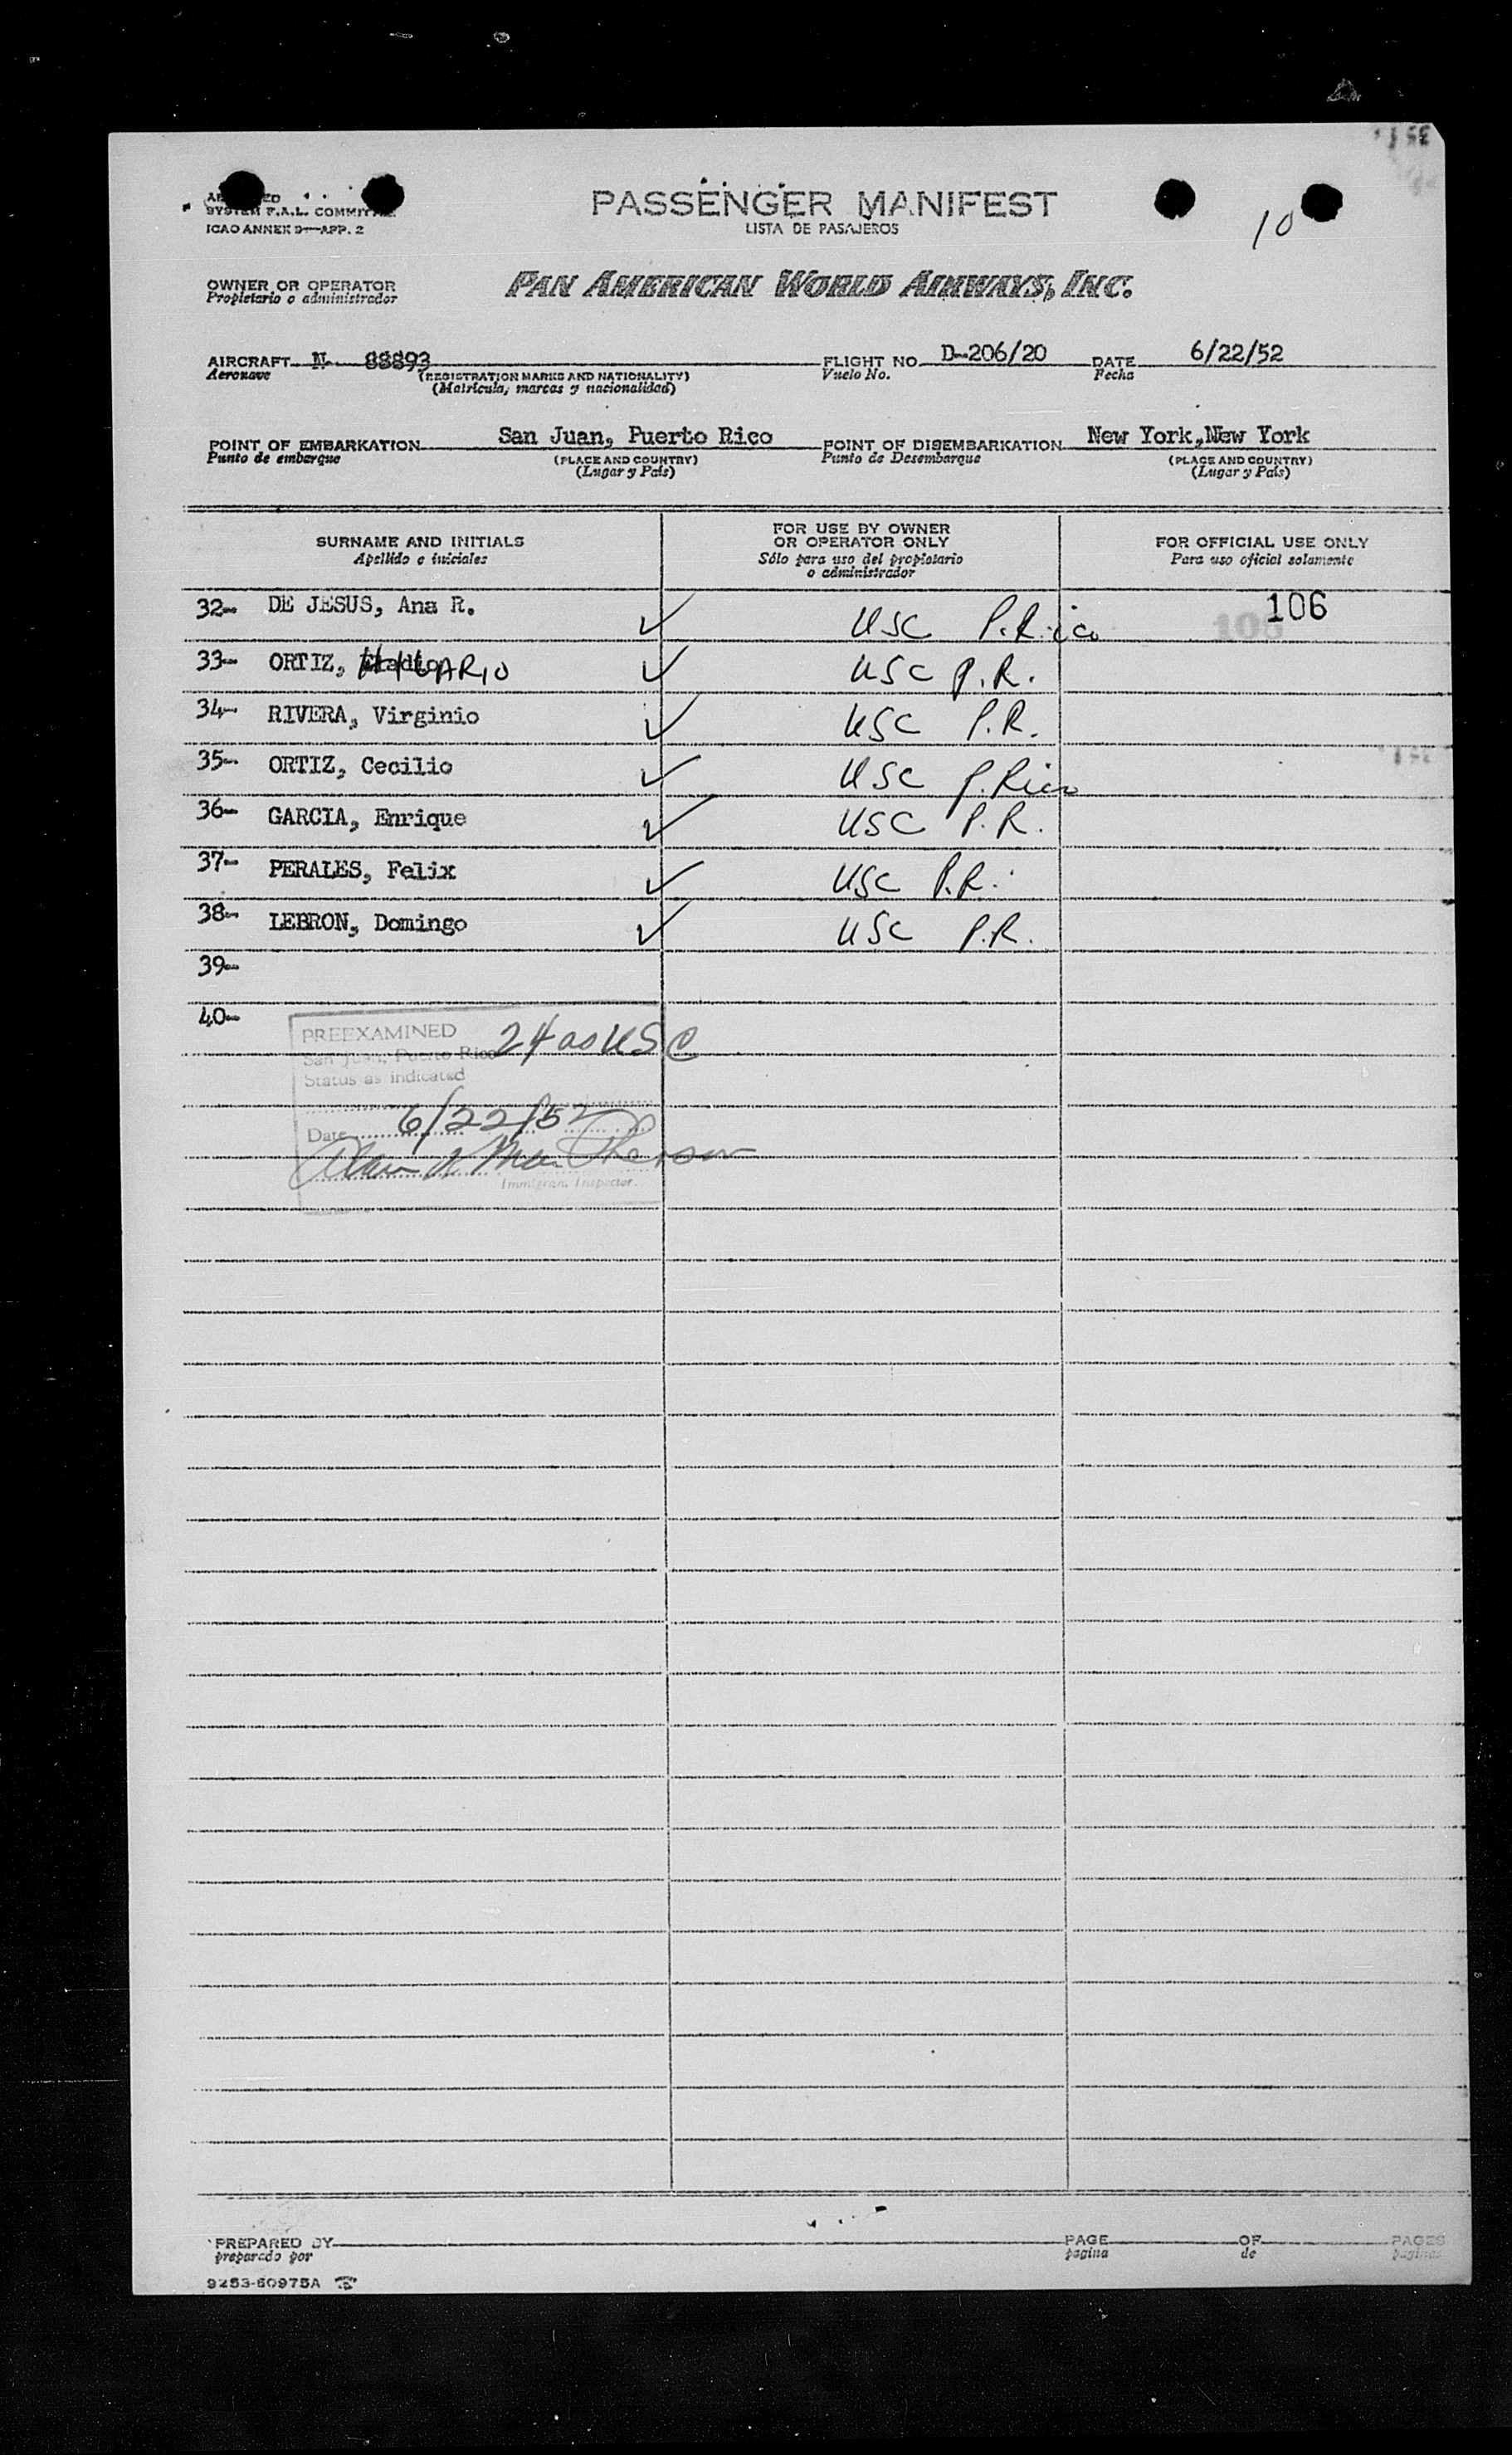 SYSTEM F.A.L. COMMITTEE
ICAO ANNEX 9—APP. 2
PASSENGER MANIFEST
LISTA DE PASAJEROS
10
OWNER OR OPERATOR
Propietario o administrador
PAN AMERICAN WORLD AIRWAYS, INC.
AIRCRAFT N- 88893 FLIGHT NO. D-206/20 DATE 6/22/52
Aeronave (REGISTRATION MARKS AND NATIONALITY) Vuelo No. Fecha
(Matricula, marcas y nacionalidad)
POINT OF EMBARKATION San Juan, Puerto Rico POINT OF DISEMBARKATION New York,New York
Punto de embarque (PLACE AND COUNTRY) Punto de Desembarque (PLACE AND COUNTRY)
(Lugar y País) (Lugar y País)
SURNAME AND INITIALS FOR USE BY OWNER OR OPERATOR ONLY FOR OFFICIAL USE ONLY
Apellido e iniciales Sólo para uso del propietario o administrador Para uso oficial solamente
32- DE JESUS, Ana R. ✓ USC P.Rico 106
33- ORTIZ, HILARIO ✓ USC P.R.
34- RIVERA, Virginio ✓ USC P.R.
35- ORTIZ, Cecilio ✓ USC P.Rico
36- GARCIA, Enrique ✓ USC P.R.
37- PERALES, Felix ✓ USC P.R.
38- LEBRON, Domingo ✓ USC P.R.
39-
40-
PREEXAMINED
San Juan, Puerto Rico 24 as USC
Status as indicated
Date 6/22/52
Immigrant Inspector
PREPARED BY PAGE OF PAGES
preparado por pagina de paginas
9253-60975A